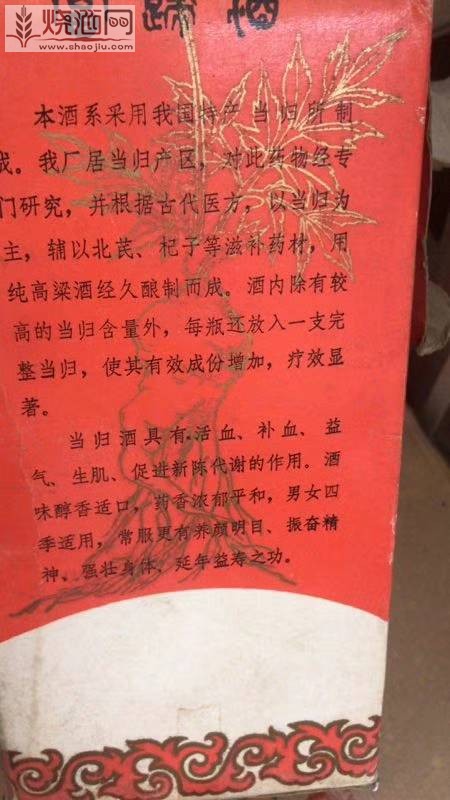 烧酒网
www.shaojiu.com
归蹄酒
本酒系采用我国特产当归所制
成。我厂居当归产区，对此药物经专
门研究，并根据古代医方，以当归为
主，辅以北芪、杞子等滋补药材，用
纯高粱酒经久酿制而成。酒内除有较
高的当归含量外，每瓶还放入一支完
整当归，使其有效成份增加，疗效显
著。
当归酒具有活血、补血、益
气、生肌、促进新陈代谢的作用。酒
味醇香适口，药香浓郁平和，男女四
季适用，常服更有养颜明目、振奋精
神、强壮身体、延年益寿之功。